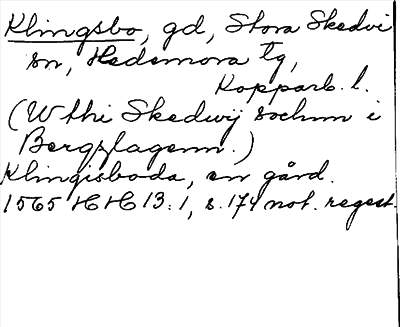 Klingsbo, gd, Stora Skedvi
sn, Hedemora tg,
Kopparb. l.
(Wthi Skedwij sochnn i
Bergzlagenn.)
Klingisboda, en gård.
1565 HH 13:1, s. 174 not. regest.